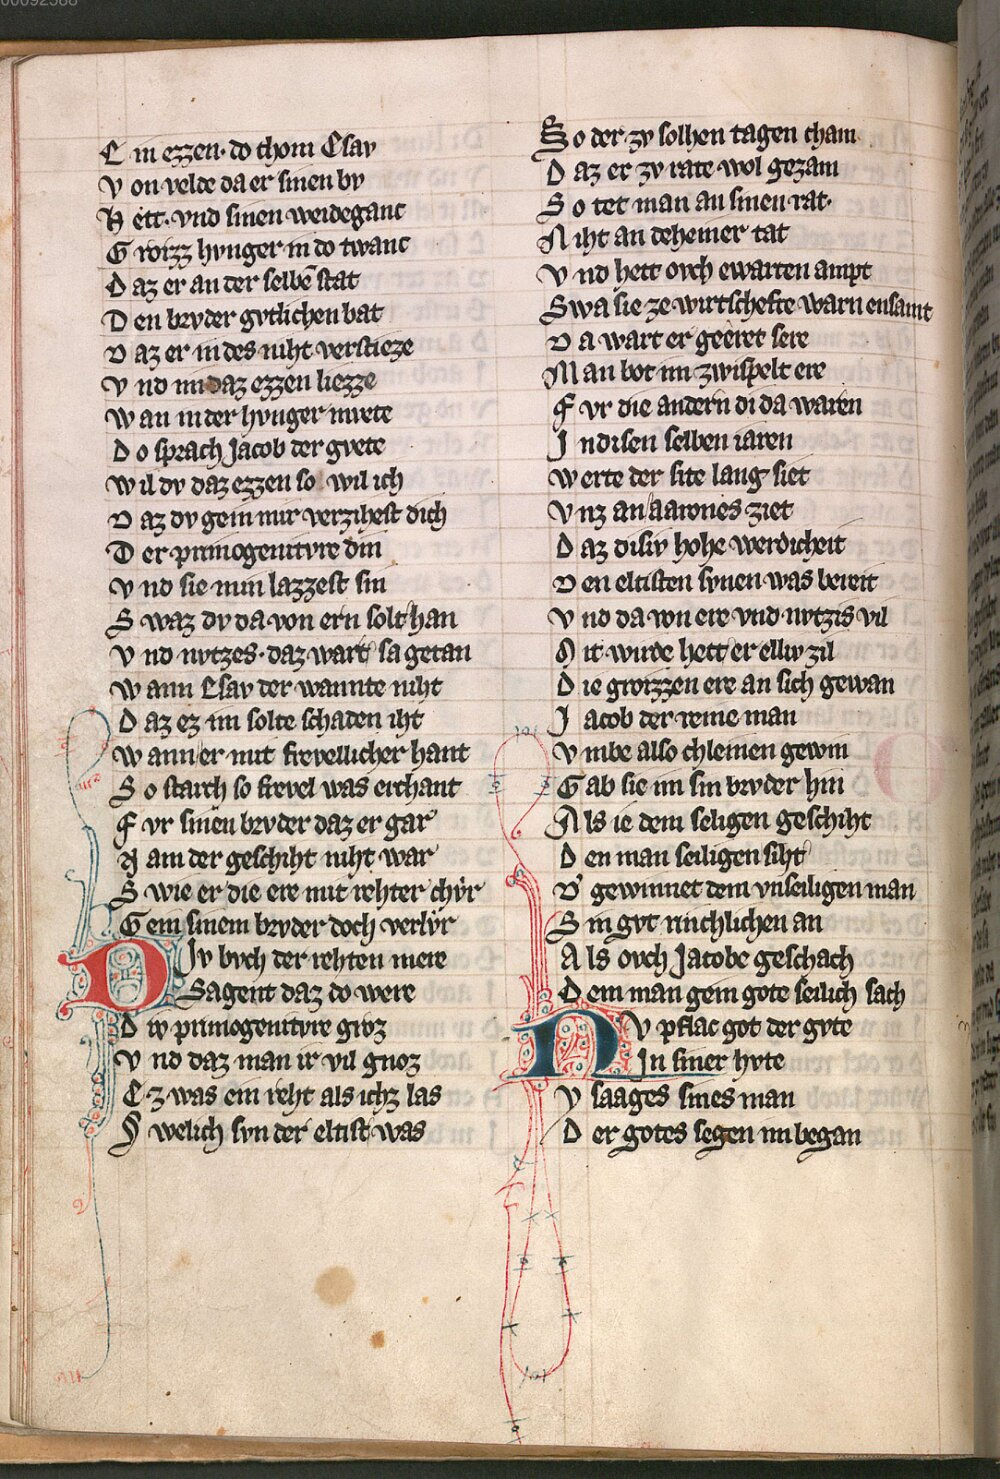 00092588
E in ezzen· do chom Esav
V on velde da er sinen bv
H ett· vnd sinen weideganc
G roizz hvnger in do twanc
D az er an der selbē stat
D en brvder gvtlichen bat
D az er in des niht verstieze
V nd im daz ezzen liezze
W an in der hvnger mvete
D o sprach Jacob der gvete
W il dv daz ezzen so wil ich
D az dv gein mir verzihest dich
D er primogenitvre din
V nd sie min lazzest sin
S waz dv da von ern solt han
V nd nvtzes· daz wart sa getan
W ann Esav der wannte niht
D az ez im solte schaden iht
W ann er mit frevellicher hant
S o starch so frevel was erchant
F vr sinen brvder daz er gar
N am der geschiht niht war
S wie er die ere mit rehter chv̊r
G ein sinem brvder doch verlv̊r
D Iv bvch der rehten mere
Sagent daz do were
D iv primogenitvre groz
V nd daz man ir vil gnoz
E z was ein reht als ichz las
S welich svn der eltist was
S o der zv solhen tagen cham
D az er zv rate wol gezam
S o tet man an sinen rat·
N iht an deheiner tat
V nd hett ovch ewarten ampt
S wa sie ze wirtschefte warn ensamt
D a wart er geeret sere
M an bot im zwispelt ere
F vr die andern di da waren
I n disen selben iaren
W erte der site lang siet
V nz an aarones ziet
D az disiv hohe werdicheit
D en eltisten svnen was bereit
V nd da von ere vnd nvtzis vil
M it wirde hett er elliv zil
D ie groizzen ere an sich gewan
J acob der reine man
V mbe also chleinen gewin
G ab sie im sin brvder hin
A ls ie dem seligen geschiht
D en man seiligen siht
V̓ gewinnet dem vnseiligen man
S in gvt michlichen an
A ls ovch Jacobe geschach
D em man gein gote seilich sach
N V pflac got der gvte
In siner hvte
Y saages sines man
D er gotes segen im began